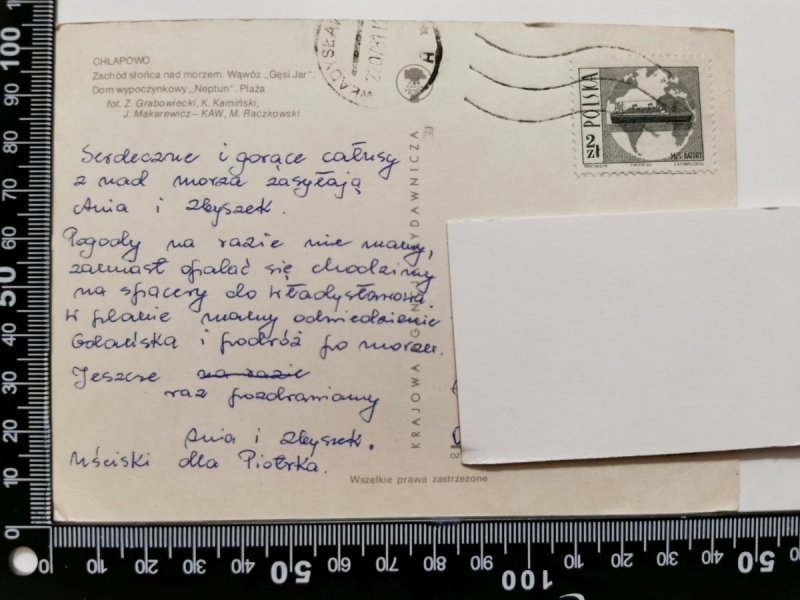 CHŁAPOWO
Zachód słońca nad morzem. Wąwóz „Gęsi Jar".
Dom wypoczynkowy „Neptun". Plaża
fot. Z. Grabowiecki, K. Kamiński,
J. Makarewicz – KAW, M. Raczkowski
Serdeczne i gorące całusy
z nad morza zasyłają
Ania i Zbyszek.
Pogody na razie nie mamy,
zamiast opalać się chodzimy
na spacery do Władysławowa.
W planie mamy odwiedzenie
Gdańska i podróż po morzu.
Jeszcze na razie
raz pozdrawiamy
Ania i Zbyszek.
Uściski dla Piotrka.
Wszelkie prawa zastrzeżone
KRAJOWA AGENCJA WYDAWNICZA
A
POLSKA
2 zł
M/S BATORY
0 10 20 30 40 50 60 70 80 90 100
0 10 20 30 40 50 60 70 80 90 100 10 20 30 40 50